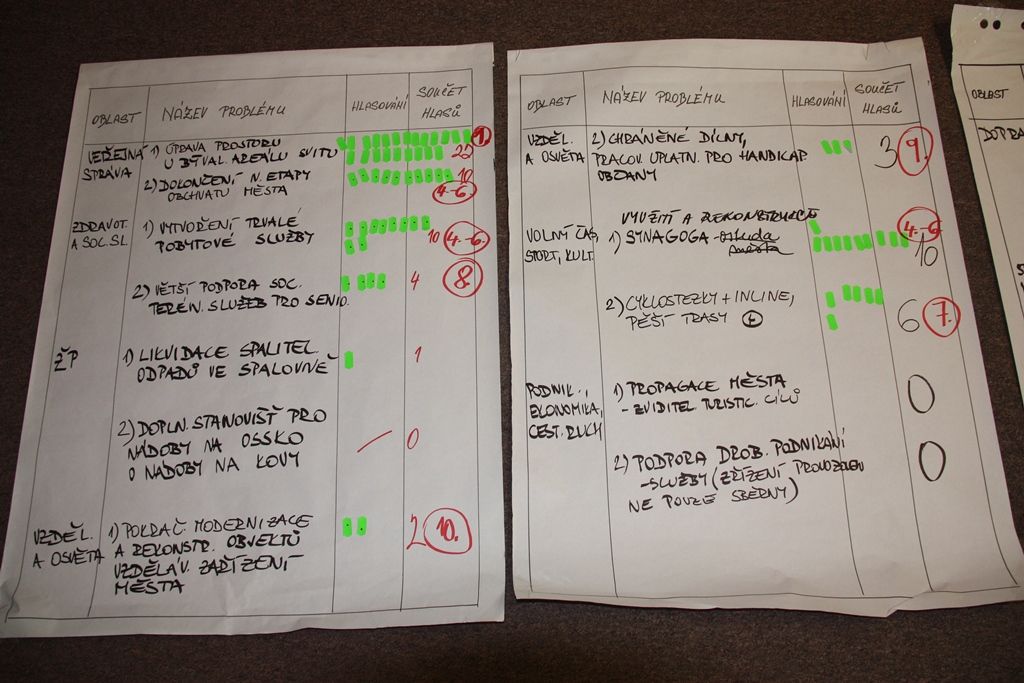 OBLAST NÁZEV PROBLÉMU HLASOVÁNÍ SOUČET HLASŮ
VEŘEJNÁ SPRÁVA
1) ÚPRAVA PROSTORU
U BÝVAL. AREÁLU SVITU
1.
22
2) DOKONČENÍ N. ETAPY
OBCHVATU MĚSTA
10
4.-6.
ZDRAVOT.
A SOC. SL.
1) VYTVOŘENÍ TRVALÉ
POBYTOVÉ SLUŽBY
10 4.-6.
2) VĚTŠÍ PODPORA SOC.
TERÉN. SLUŽEB PRO SENIO.
4 8.
ŽP
1) LIKVIDACE SPALITEL.
ODPADŮ VE SPALOVNĚ
1
2) DOPLN. STANOVIŠŤ PRO
NÁDOBY NA OSSKO
O NÁDOBY NA KOVY
0
VZDĚL.
A OSVĚTA
1) POKRAČ. MODERNIZACE
A REKONSTR. OBJEKTŮ
VZDĚLÁV. ZAŘÍZENÍ
MĚSTA
2 10.
OBLAST NÁZEV PROBLÉMU HLASOVÁNÍ SOUČET HLASŮ
VZDĚL.
A OSVĚTA
2) CHRÁNĚNÉ DÍLNY,
PRACOV. UPLATN. PRO HANDICAP.
OBČANY
3 9.
VOLNÝ ČAS,
SPORT, KULT.
VYUŽITÍ A REKONSTRUKCE
1) SYNAGOGA
města
4.-6
10
2) CYKLOSTEZKY + INLINE,
PĚŠÍ TRASY
6 7.
PODNIK.,
EKONOMIKA,
CEST. RUCH
1) PROPAGACE MĚSTA
- ZVIDITEL. TURISTIC. CÍLŮ
0
2) PODPORA DROB. PODNIKÁNÍ
- SLUŽBY (ZŘÍZENÍ PROVOZOVEN
NE POUZE SBĚRNY)
0
OBLAST
DOPRA